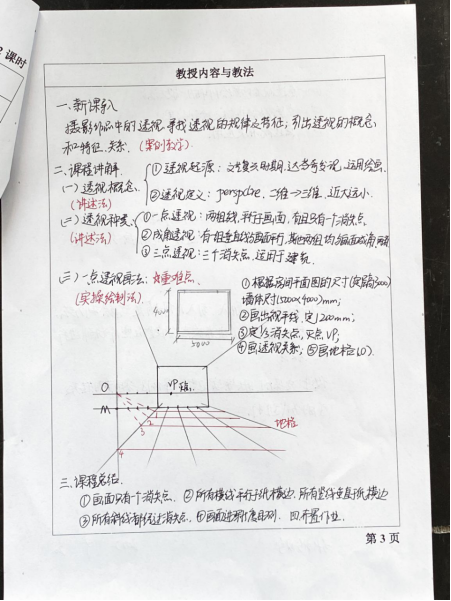 课时
教授内容与教法
一、新课导入
摄影作品中的透视,寻找透视的规律及特征,引出透视的概念
和特征、关系. (案例教学)
二、课程讲解. ①透视起源:文艺复兴时期,达芬奇发现,运用绘画.
(一)透视概念. ②透视定义: 二维→三维 近大远小.
(讲述法)
(二)透视种类. ①一点透视:两组线,平行画面,有且只有一个消失点.
(讲述法) ②成角透视:有一组垂直线与画面平行,其他两组均与画面成角
③三点透视:三个消失点,适用于建筑.
(三)一点透视画法:重难点. ①根据房间平面图的尺寸
(实操绘制法). 墙体尺寸(5200×4000)mm;
4000 ②画出视平线,定1200mm;
5000 ③定消失点,灭点VP;
④画透视关系; ⑤画地粒(O).
O VP
M
1
2
3
4
三、课程总结.
①画面只有一个消失点. ②所有横线平行于纸横边,所有竖线垂直于纸横边
③所有斜线都经过消失点. 四、布置作业.
第 3 页